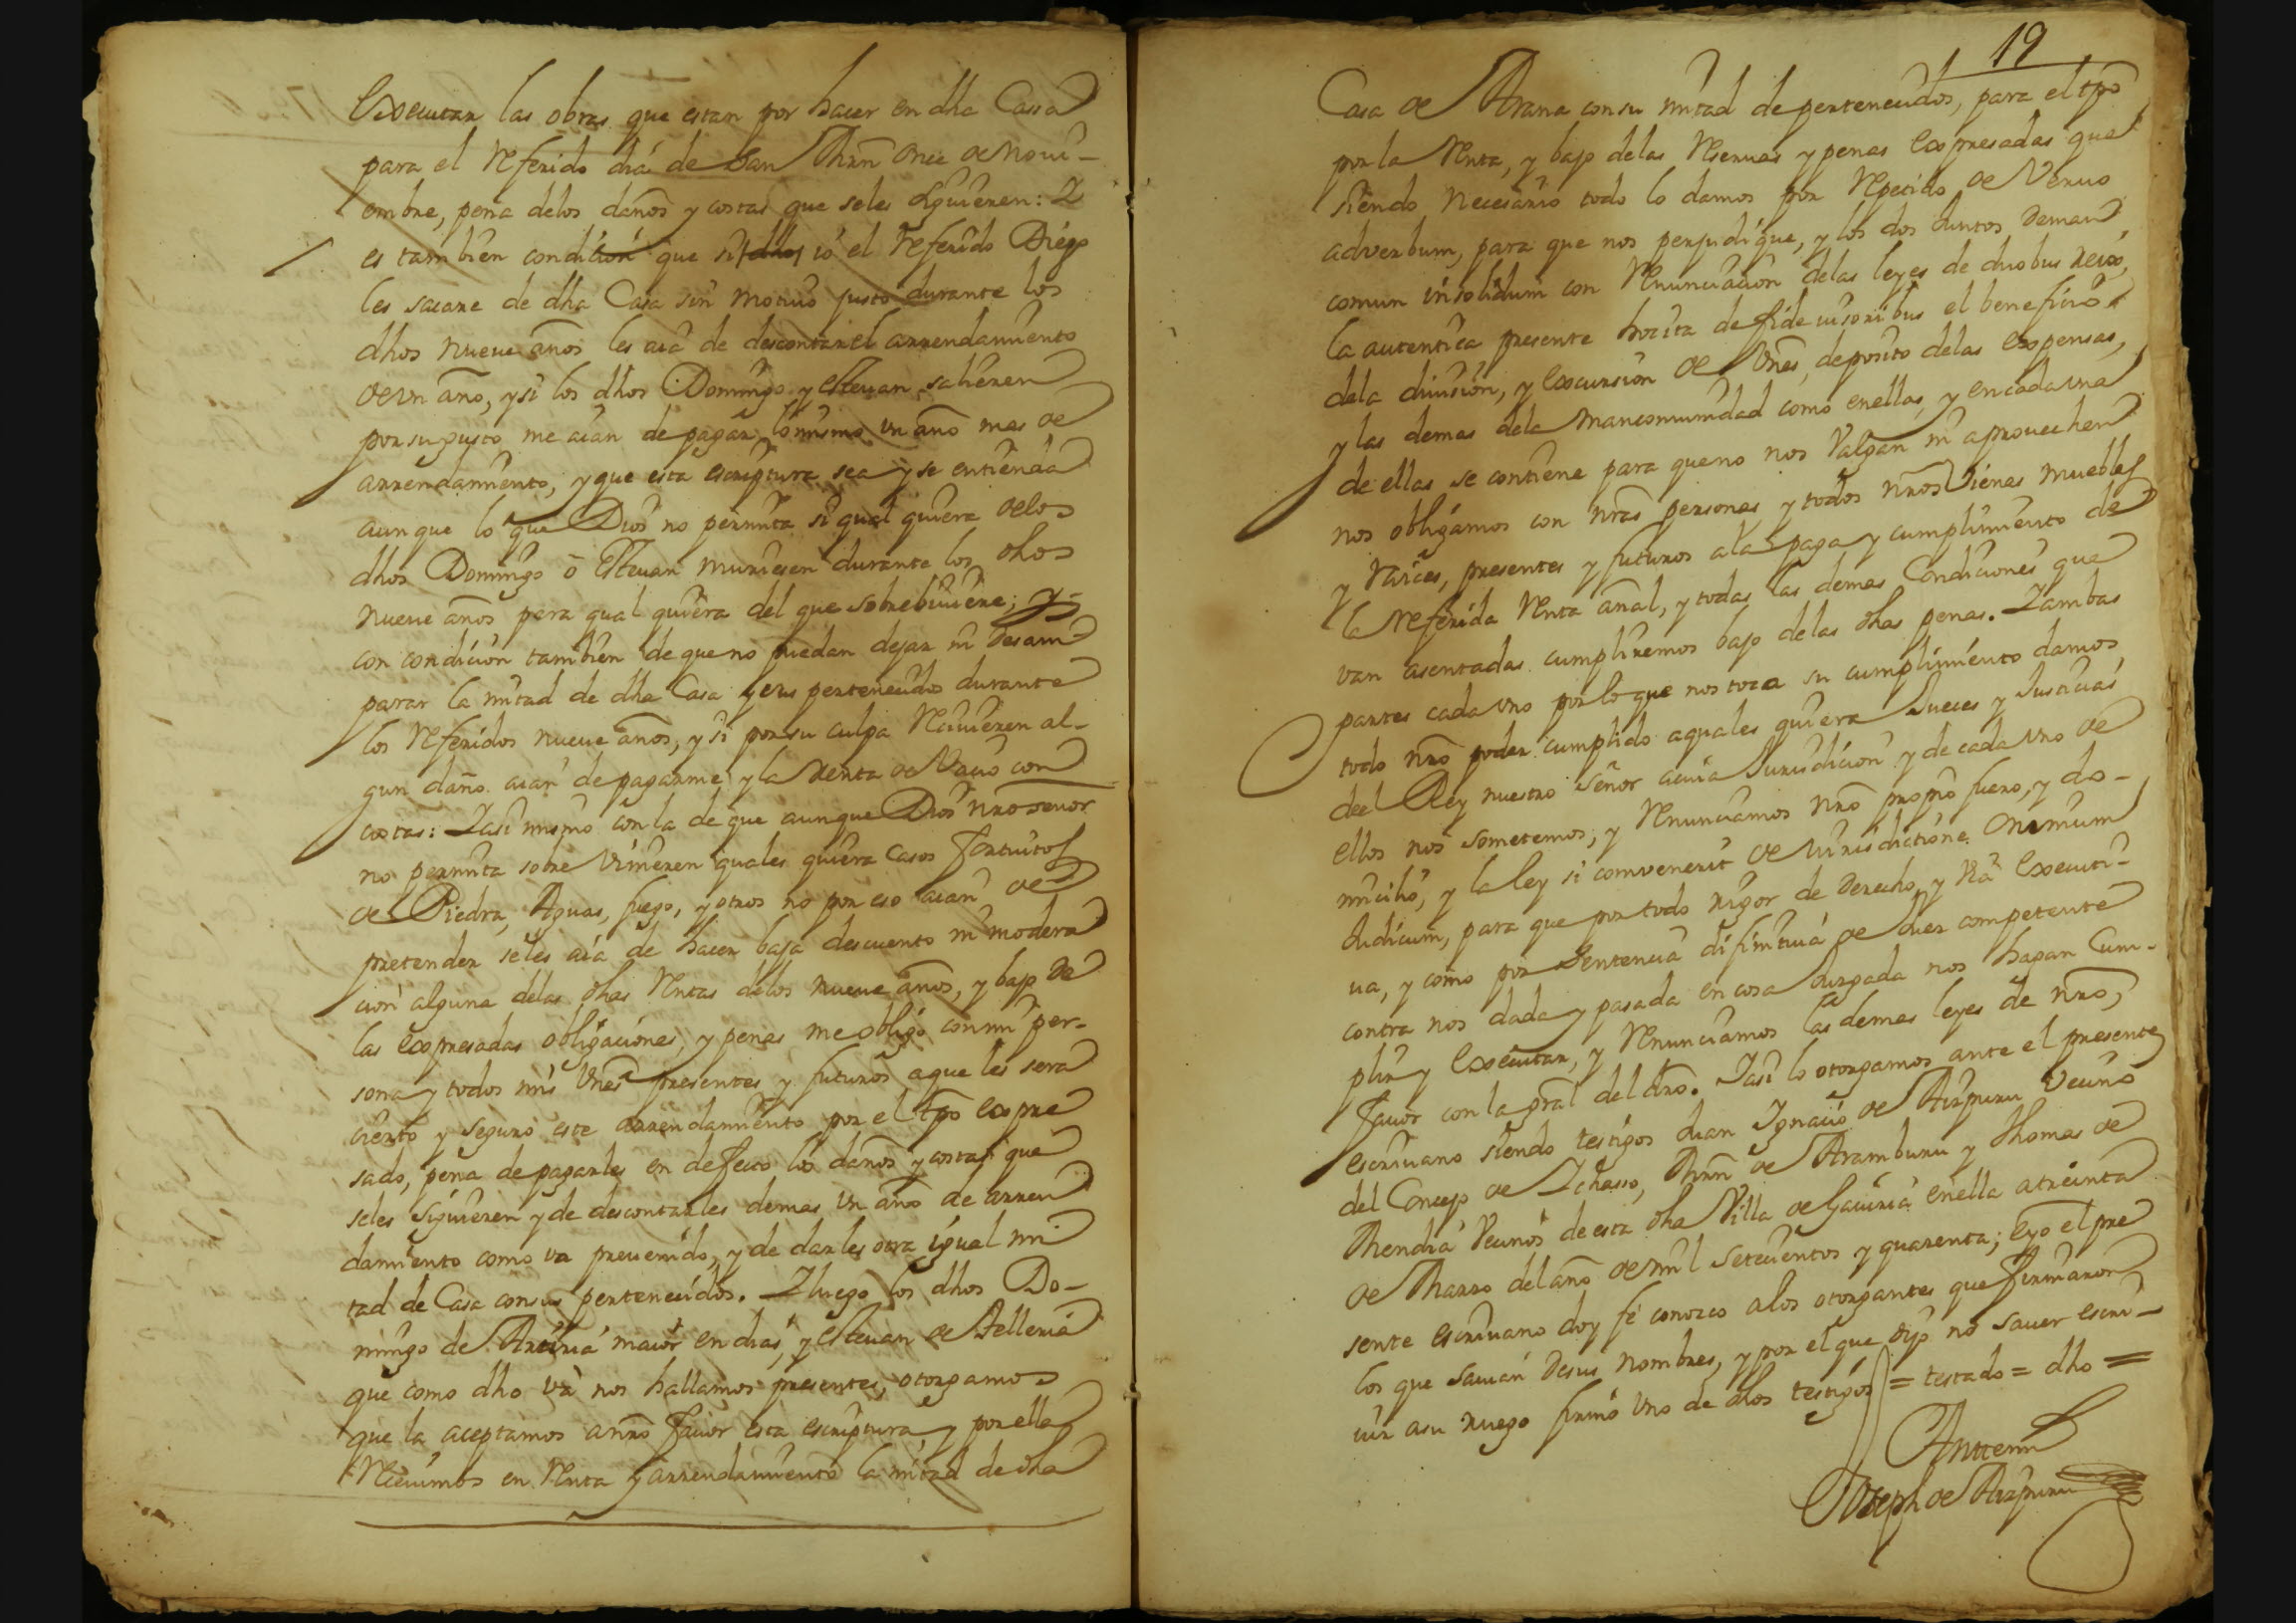 Executar las obras que estan por hacer en dha Cassa
para el referido dia de San Mrn Once de Novi-
embre, pena delos daños y costas que seles siguieren: Y
es tambien condicion que si dho io el referido Diego
les sacare de dha Casa sin motivo justo durante los
dhos nueve años les aia de descontar el arrendamiento
de un año, y si los dhos Domingo y Estevan salieren
por su gusto me aian de pagar lo mismo un año mas de
arrendamiento, y que esta escriptura sea y se entienda
aun que lo que Dios no permita si qual quiera delos
dhos Domingo ô Estevan muriesen durante los dhos
nueve años pera qual quiera del que sobrebiviere; y=
con condicion tambien de que no puedan dejar ni desam
parar la mitad de dha Casa y sus pertenecidos durante
los referidos nueve años, y si por su culpa recivieren al-
gun daño aian de pagarme y la renta de vacio con
costas: Y asi mismo con la de que aunque Dios nro senor
no permita sobre vinieren quales quiera Casos fortuitos
de Piedra, Aguas, fuego, y otros no por eso aian de
pretender seles aia de hacer baja descuento ni modera
cion alguna delas dhas rentas delos nueve años, y bajo de
las expresadas obligaciones, y penas me obligo con mi per-
sona y todos mis vnes presentes y futuros a que les sera
cierto y seguro este arrendamiento por el tpo expre
sado, pena de pagarles en defecto los daños y costas que
seles siguieren y de descontarles demas un año de arren
damiento como va prevenido, y de darles otra igual mi
tad de Casa con sus pertenecidos. Y luego los dhos Do-
mingo de maior en dias, y Estevan de Telleria
que como dho va nos hallamos presentes, otorgamos
que la aceptamos a nro favor esta escriptura y por ella
Recivimos en renta y arrendamiento la mitad de dha
19
Casa de Arana con su mitad de pertenecidos, para el tpo
por la renta, y bajo delas reservas y penas expresadas que
siendo necesario todo lo damos por repetido de Vervo
adverbum, para que nos perjudique, y los dos Juntos deman
comun insolidum con renunciacion delas leyes de duobus reix,
la autentica presente hocita de fide iusoribus el beneficio
dela division, y excursion de vnes, deposito delas expensas,
y las demas dela mancomunidad como enellas, y encada una
de ellas se contiene para que no nos valgan ni aprovechen
nos obligamos con nras personas y todos nros vienes muebles
y raices, presentes y futuros ala paga y cumplimiento de
la referida renta añal, y todas las demas Condiciones que
van asentadas cumpliremos bajo delas dhas penas. Y ambas
partes cada uno por lo que nos toca su cumplimiento damos
todo nro poder cumplido a quales quiera Jueces y Justicias
del Rey nuestro señor a cuia Jurisdicion y de cada uno de
ellos nos sometemos, y renunciamos nro propio fuero, y do-
micilio, y la ley si convenerit de iurisdictione Omnium
Judicum, para que por todo rigor de derecho, y via executi-
va, y como por sentencia difinitiva de Juez competente
contra nos dada y pasada en cosa Juzgada nos hagan Cum-
plir y executar, y renunciamos las demas leyes de nro,
favor con la gral del dro. Y asi lo otorgamos ante el presente
escrivano siendo testigos Juan Ignacio de Aizpuru vecino
del Concejo de Ychasso, Mrn de Aramburu y Thomas de
Mendia vecinos de esta dha Villa de Gaviria enella a treinta
de Marzo del año de mil setecientos y quarenta; e yo el pre
sente escrivano doy fe conozco alos otorgantes que firmaron
los que savian de sus nombres, y por el que dijo no saver escri-
vir a su ruego firmo uno de dhos testigos = testado = dho =
Antemi
Joseph de Aizpuru